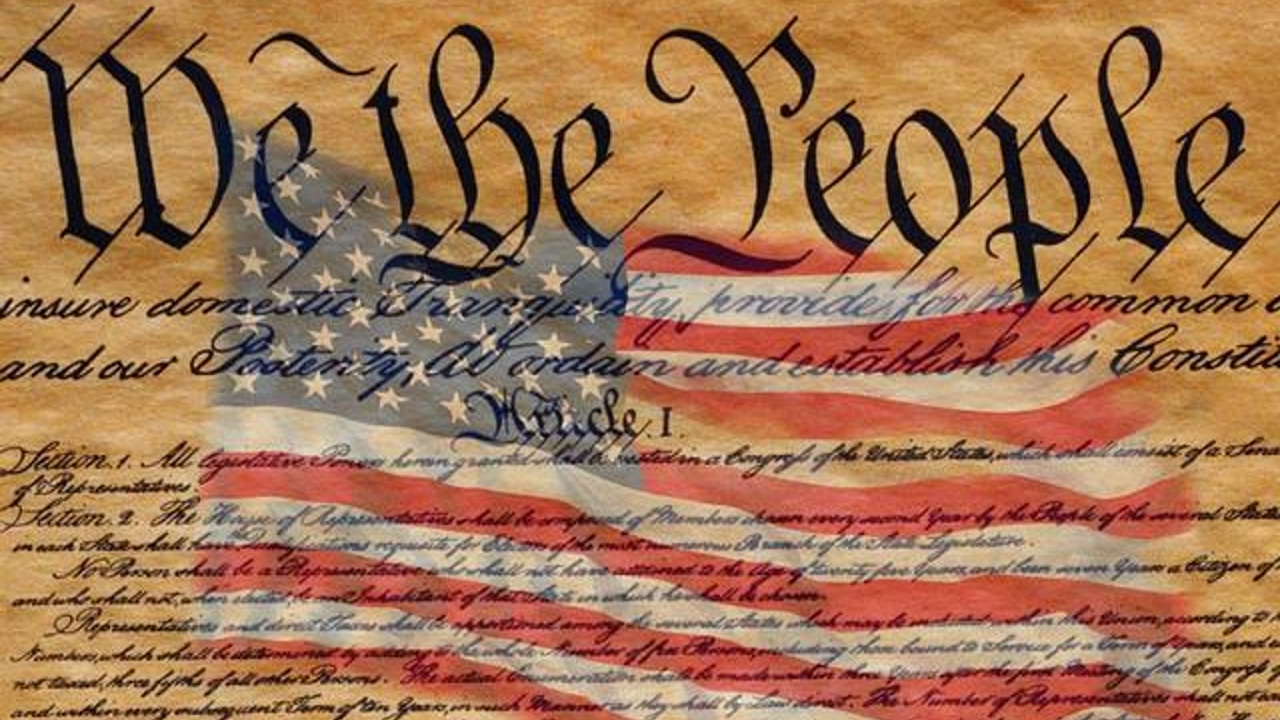 We the People
insure domestic Tranquility, provide for the common
and our Posterity, do ordain and establish this Constitu
Article. I.
Section. 1. All legislative Powers herein granted shall be vested in a Congress of the United States, which shall consist of a Sena
of Representatives.
Section. 2. The House of Representatives shall be composed of Members chosen every second Year by the People of the several States
in each State shall have Qualifications requisite for Electors of the most numerous Branch of the State Legislature.
No Person shall be a Representative who shall not have attained to the Age of twenty five Years, and been seven Years a Citizen of
and who shall not, when elected, be an Inhabitant of that State in which he shall be chosen.
Representatives and direct Taxes shall be apportioned among the several States which may be included within this Union, according to
Numbers, which shall be determined by adding to the whole Number of free Persons, including those bound to Service for a Term of Years, and
not taxed, three fifths of all other Persons. The actual Enumeration shall be made within three Years after the first Meeting of the Congress
and within every subsequent Term of ten Years, in such Manner as they shall by Law direct. The Number of Representatives shall not